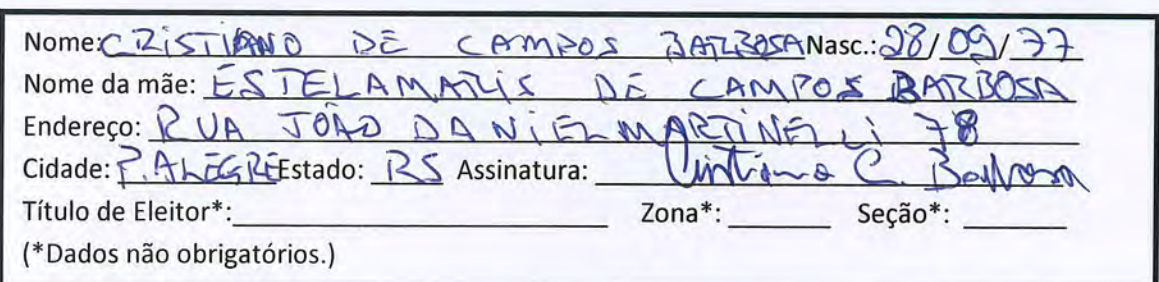 Nome: CRISTIANO DE CAMPOS BARBOSA Nasc.: 28/09/77
Nome da mãe: ESTELAMARIS DE CAMPOS BARBOSA
Endereço: RUA JOÃO DANIEL MARTINELLI 78
Cidade: P. ALEGRE Estado: RS Assinatura: Cristiano C. Barbosa
Título de Eleitor*: Zona*: Seção*:
(*Dados não obrigatórios.)